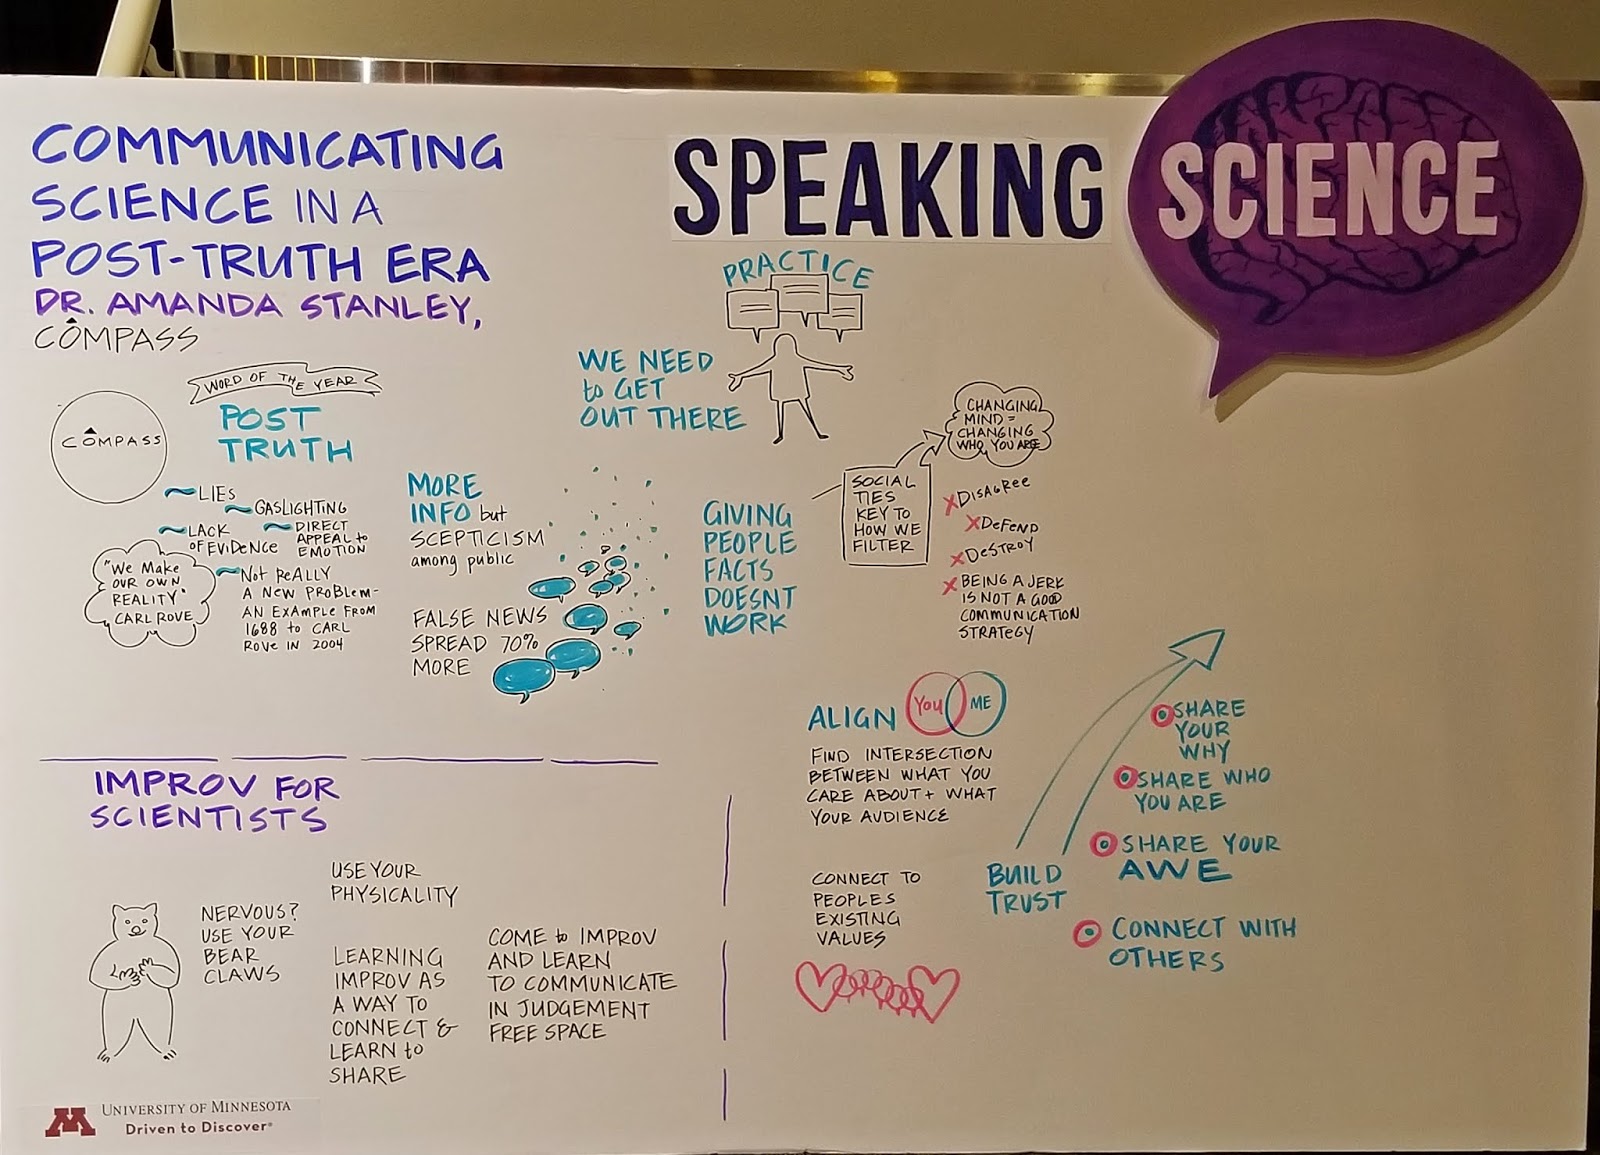 COMMUNICATING
SCIENCE IN A
POST-TRUTH ERA
DR. AMANDA STANLEY,
COMPASS
SPEAKING SCIENCE
COMPASS
WORD OF THE YEAR
POST
TRUTH
LIES
GASLIGHTING
LACK
OF EVIDENCE
DIRECT
APPEAL to
EMOTION
"We Make
OUR OWN
REALITY"
CARL ROVE
Not ReALLY
A NEW PROBLEM-
AN EXAMPLE FROM
1688 to CARL
ROVE IN 2004
MORE
INFO but
SCEPTICISM
among public
FALSE NEWS
SPREAD 70%
MORE
PRACTICE
WE NEED
to GET
OUT THERE
GIVING
PEOPLE
FACTS
DOESNT
WORK
SOCIAL
TIES
KEY TO
HOW WE
FILTER
CHANGING
MIND =
CHANGING
WHO YOU ARE
X DISAGRee
X DeFeND
X DeSTROY
X BEING A JERK
IS NOT A GOOD
COMMUNICATION
STRATEGY
ALIGN
You
ME
FIND INTERSECTION
BETWEEN WHAT YOU
CARE ABOUT + WHAT
YOUR AUDIENCE
CONNECT TO
PEOPLES
EXISTING
VALUES
BUILD
TRUST
SHARE
YOUR
WHY
SHARE WHO
YOU ARE
SHARE YOUR
AWE
CONNECT WITH
OTHERS
IMPROV FOR
SCIENTISTS
NERVOUS?
USE YOUR
BEAR
CLAWS
USE YOUR
PHYSICALITY
LEARNING
IMPROV AS
A WAY TO
CONNECT &
LEARN to
SHARE
COME to IMPROV
AND LEARN
TO COMMUNICATE
IN JUDGEMENT
FREE SPACE
M
UNIVERSITY OF MINNESOTA
Driven to Discover®